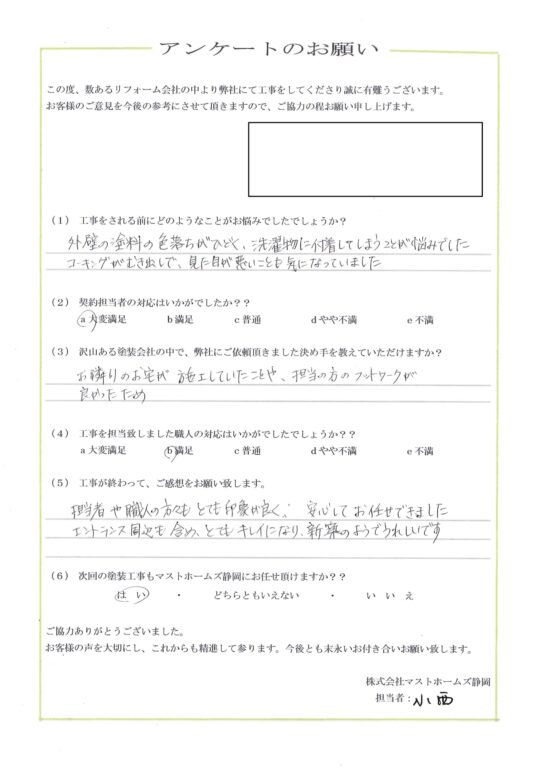 アンケートのお願い
この度、数あるリフォーム会社の中より弊社にて工事をしてくださり誠に有難うございます。
お客様のご意見を今後の参考にさせて頂きますので、ご協力の程お願い申し上げます。
(1) 工事をされる前にどのようなことがお悩みでしたでしょうか?
外壁の塗料の色落ちがひどく、洗濯物に付着してしまうことが悩みでした
コーキングがむき出しで、見た目が悪いことも気になっていました
(2) 契約担当者の対応はいかがでしたか??
a 大変満足 b 満足 c 普通 d やや不満 e 不満
(3) 沢山ある塗装会社の中で、弊社にご依頼頂きました決め手を教えていただけますか?
お隣りのお宅が施工していたことや、担当の方のフットワークが
良かったため
(4) 工事を担当致しました職人の対応はいかがでしたでしょうか?
a 大変満足 b 満足 c 普通 d やや不満 e 不満
(5) 工事が終わって、ご感想をお願い致します。
担当者や職人の方々もとても印象が良く、安心してお任せできました
エントランス周辺も含め、とてもキレイになり、新築のようでうれしいです
(6) 次回の塗装工事もマストホームズ静岡にお任せ頂けますか??
はい ・ どちらともいえない ・ いいえ
ご協力ありがとうございました。
お客様の声を大切にし、これからも精進して参ります。今後とも末永いお付き合いお願い致します。
株式会社マストホームズ静岡
担当者:小西